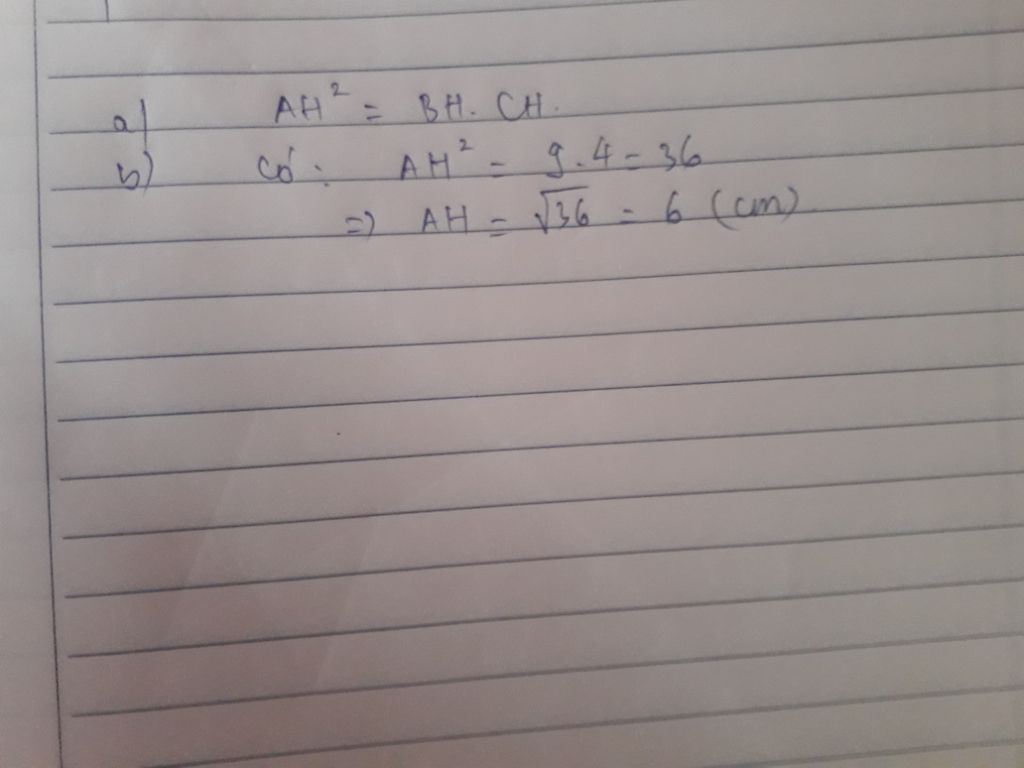 a) AH² = BH. CH.
b) Có: AH² = 9.4 = 36
=) AH = √36 = 6 (cm)